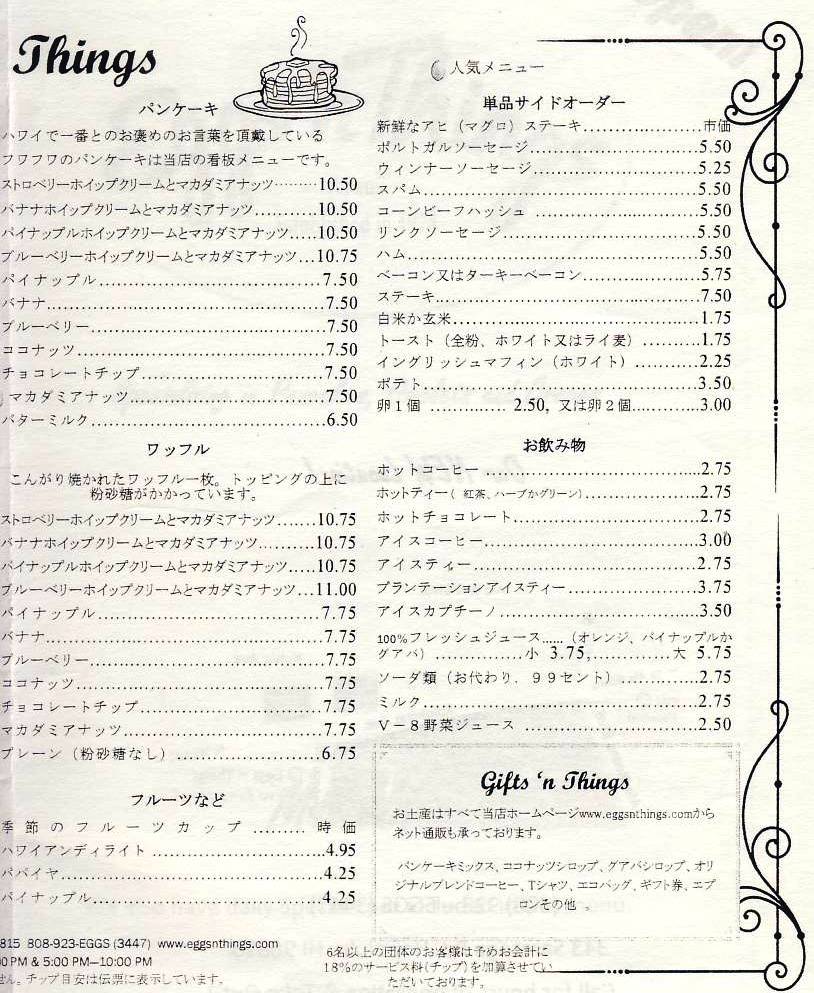 Things
パンケーキ
ハワイで一番とのお褒めのお言葉を頂戴している
フワフワのパンケーキは当店の看板メニューです。
ストロベリーホイップクリームとマカダミアナッツ.........10.50
バナナホイップクリームとマカダミアナッツ............10.50
パイナップルホイップクリームとマカダミアナッツ.....10.50
ブルーベリーホイップクリームとマカダミアナッツ...10.75
パイナップル...............................7.50
バナナ.......................................7.50
ブルーベリー................................7.50
ココナッツ...................................7.50
チョコレートチップ.........................7.50
マカダミアナッツ...........................7.50
バターミルク.................................6.50
ワッフル
こんがり焼かれたワッフル一枚。トッピングの上に
粉砂糖がかかっています。
ストロベリーホイップクリームとマカダミアナッツ.......10.75
バナナホイップクリームとマカダミアナッツ..........10.75
パイナップルホイップクリームとマカダミアナッツ.....10.75
ブルーベリーホイップクリームとマカダミアナッツ...11.00
パイナップル...............................7.75
バナナ.......................................7.75
ブルーベリー................................7.75
ココナッツ...................................7.75
チョコレートチップ.........................7.75
マカダミアナッツ...........................7.75
プレーン（粉砂糖なし）.....................6.75
フルーツなど
季節のフルーツカップ......... 時価
ハワイアンディライト .........................4.95
パパイヤ.....................................4.25
パイナップル.................................4.25
815 808-923-EGGS (3447) www.eggsnthings.com
00 PM & 5:00 PM—10:00 PM
せん。チップ目安は伝票に表示しています。
人気メニュー
単品サイドオーダー
新鮮なアヒ（マグロ）ステーキ..................市価
ポルトガルソーセージ..........................5.50
ウィンナーソーセージ..........................5.25
スパム........................................5.50
コーンビーフハッシュ .........................5.50
リンクソーセージ..............................5.50
ハム..........................................5.50
ベーコン又はターキーベーコン..................5.75
ステーキ......................................7.50
白米か玄米....................................1.75
トースト（全粉、ホワイト又はライ麦）..........1.75
イングリッシュマフィン（ホワイト）............2.25
ポテト........................................3.50
卵１個 ............ 2.50, 又は卵２個.............3.00
お飲み物
ホットコーヒー................................2.75
ホットティー( 紅茶、ハーブかグリーン)..........2.75
ホットチョコレート............................2.75
アイスコーヒー................................3.00
アイスティー..................................2.75
プランテーションアイスティー..................3.75
アイスカプチーノ..............................3.50
100%フレッシュジュース......（オレンジ、パイナップルか
グアバ）...............小 3.75,.............大 5.75
ソーダ類（お代わり．９９セント）..............2.75
ミルク........................................2.75
Ｖ－８野菜ジュース ...........................2.50
Gifts ‘n Things
お土産はすべて当店ホームページwww.eggsnthings.comから
ネット通販も承っております。
パンケーキミックス、ココナッツシロップ、グアバシロップ、オリ
ジナルブレンドコーヒー、Tシャツ、エコバッグ、ギフト券、エプ
ロンその他 。
6名以上の団体のお客様は予めお会計に
18%のサービス料(チップ)を加算させてい
ただいております。